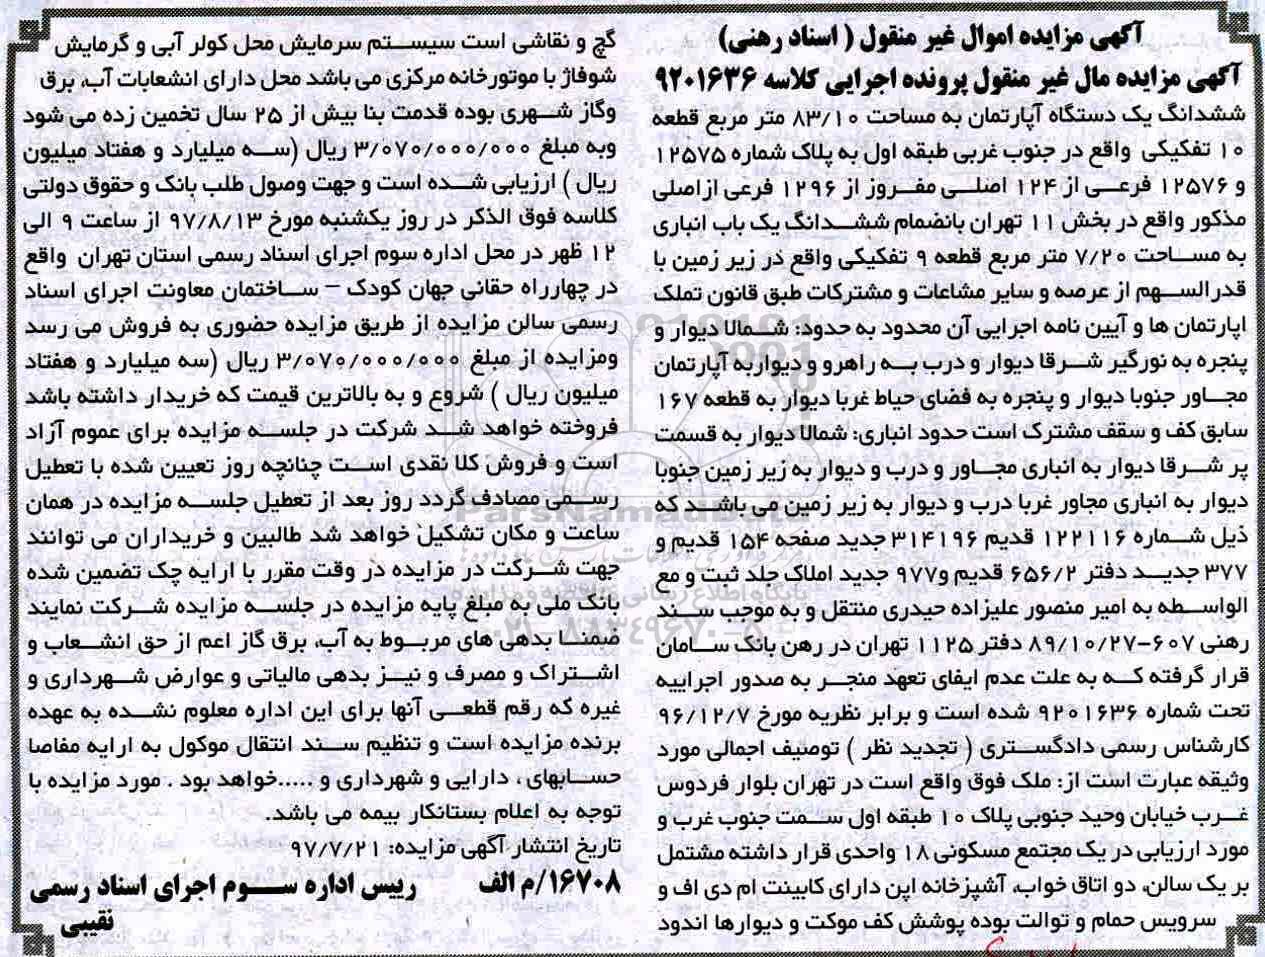 آگهی مزایده اموال غیر منقول ( اسناد رهنی)
آگهی مزایده مال غیر منقول پرونده اجرایی کلاسه ۹۲۰۱۶۳۶
ششدانگ یک دستگاه آپارتمان به مساحت ۸۳/۱۰ متر مربع قطعه
۱۰ تفکیکی واقع در جنوب غربی طبقه اول به پلاک شماره ۱۲۵۷۵
و ۱۲۵۷۶ فرعی از ۱۲۴ اصلی مفروز از ۱۲۹۶ فرعی ازاصلی
مذکور واقع در بخش ۱۱ تهران بانضمام ششدانگ یک باب انباری
به مساحت ۷/۲۰ متر مربع قطعه ۹ تفکیکی واقع در زیر زمین با
قدرالسهم از عرصه و سایر مشاعات و مشترکات طبق قانون تملک
اپارتمان ها و آیین نامه اجرایی آن محدود به حدود: شمالا دیوار و
پنجره به نورگیر شرقا دیوار و درب به راهرو و دیواربه آپارتمان
مجاور جنوبا دیوار و پنجره به فضای حیاط غربا دیوار به قطعه ۱۶۷
سابق کف و سقف مشترک است حدود انباری: شمالا دیوار به قسمت
پر شرقا دیوار به انباری مجاور و درب و دیوار به زیر زمین جنوبا
دیوار به انباری مجاور غربا درب و دیوار به زیر زمین می باشد که
ذیل شماره ۱۲۲۱۱۶ قدیم ۳۱۴۱۹۶ جدید صفحه ۱۵۴ قدیم و
۳۷۷ جدید دفتر ۶۵۶/۲ قدیم و۹۷۷ جدید املاک جلد ثبت و مع
الواسطه به امیر منصور علیزاده حیدری منتقل و به موجب سند
رهنی ۶۰۷-۸۹/۱۰/۲۷ دفتر ۱۱۲۵ تهران در رهن بانک سامان
قرار گرفته که به علت عدم ایفای تعهد منجر به صدور اجراییه
تحت شماره ۹۲۰۱۶۳۶ شده است و برابر نظریه مورخ ۹۶/۱۲/۷
کارشناس رسمی دادگستری ( تجدید نظر ) توصیف اجمالی مورد
وثیقه عبارت است از: ملک فوق واقع است در تهران بلوار فردوس
غرب خیابان وحید جنوبی پلاک ۱۰ طبقه اول سمت جنوب غرب و
مورد ارزیابی در یک مجتمع مسکونی ۱۸ واحدی قرار داشته مشتمل
بر یک سالن، دو اتاق خواب، آشپزخانه اپن دارای کابینت ام دی اف و
سرویس حمام و توالت بوده پوشش کف موکت و دیوارها اندود
گچ و نقاشی است سیستم سرمایش محل کولر آبی و گرمایش
شوفاژ با موتورخانه مرکزی می باشد محل دارای انشعابات آب، برق
وگاز شهری بوده قدمت بنا بیش از ۲۵ سال تخمین زده می شود
وبه مبلغ ۳/۰۷۰/۰۰۰/۰۰۰ ریال (سه میلیارد و هفتاد میلیون
ریال ) ارزیابی شده است و جهت وصول طلب بانک و حقوق دولتی
کلاسه فوق الذکر در روز یکشنبه مورخ ۹۷/۸/۱۳ از ساعت ۹ الی
۱۲ ظهر در محل اداره سوم اجرای اسناد رسمی استان تهران واقع
در چهارراه حقانی جهان کودک – ساختمان معاونت اجرای اسناد
رسمی سالن مزایده از طریق مزایده حضوری به فروش می رسد
ومزایده از مبلغ ۳/۰۷۰/۰۰۰/۰۰۰ ریال (سه میلیارد و هفتاد
میلیون ریال ) شروع و به بالاترین قیمت که خریدار داشته باشد
فروخته خواهد شد شرکت در جلسه مزایده برای عموم آزاد
است و فروش کلا نقدی است چنانچه روز تعیین شده با تعطیل
رسمی مصادف گردد روز بعد از تعطیل جلسه مزایده در همان
ساعت و مکان تشکیل خواهد شد طالبین و خریداران می توانند
جهت شرکت در مزایده در وقت مقرر با ارایه چک تضمین شده
بانک ملی به مبلغ پایه مزایده در جلسه مزایده شرکت نمایند
ضمنا بدهی های مربوط به آب، برق گاز اعم از حق انشعاب و
اشتراک و مصرف و نیز بدهی مالیاتی و عوارض شهرداری و
غیره که رقم قطعی آنها برای این اداره معلوم نشده به عهده
برنده مزایده است و تنظیم سند انتقال موکول به ارایه مفاصا
حسابهای ، دارایی و شهرداری و .....خواهد بود . مورد مزایده با
توجه به اعلام بستانکار بیمه می باشد.
تاریخ انتشار آگهی مزایده: ۹۷/۷/۲۱
۱۶۷۰۸/م الف رییس اداره سوم اجرای اسناد رسمی
نقیبی
ParsNamadData
۰۲۱-۸۸۳۴۹۶۷۰-۵